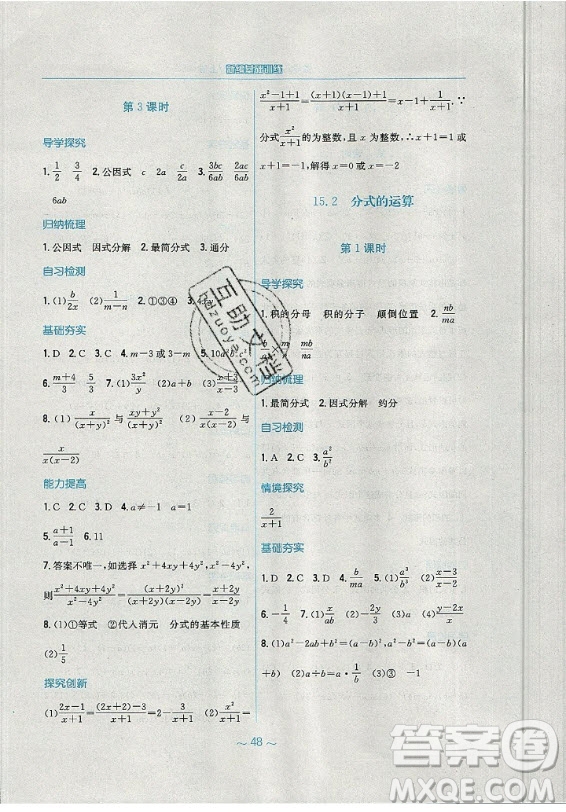 新编基础训练
第3课时
导学探究
1. 1/2 3/4 2. 公因式 c 2a c/2a 3. 3bc/6ab 2ac/6ab
6ab
归纳梳理
1. 公因式 因式分解 2. 最简分式 4. 通分
自习检测
1. (1) b/2x (2) 1/(m-n) 2. ①③④ 3.
基础夯实
1. D 2. C 3. D 4. m=3或m≠3
6. (m+4)/3 5/3 7. (1) 3x²/y (2) a+b (3)
8. (1) x/(x+y)² 与 (xy+y²)/(x+y)² (2)
x/(x(x-2))
能力提高
1. C 2. B 3. D 4. a≠-1 a=1
5. (a+1)/(a-1) 6. 11
7. 答案不唯一,如选择 x²+4xy+4y²,x²-4y²,
则 (x²+4xy+4y²)/(x²-4y²)=(x+2y)²/((x+2y)(x-2y))=(x+2y)/(x-2y)
8. (1)①等式 ②代入消元 分式的基本性质
(2) 1/5
探究创新
(1) (2x-1)/(x+1)=(2(x+1)-3)/(x+1)=2-3/(x+1) (2) x²/(x+1)=
(x²-1+1)/(x+1)=((x+1)(x-1)+1)/(x+1)=x-1+1/(x+1). ∵
分式 x²/(x+1) 的为整数,且 x 为整数,∴
x+1=±1,解得 x=0 或 x=-2
15.2 分式的运算
第1课时
导学探究
1. 积的分母 积的分子 颠倒位置 2. nb/ma
mb/na
归纳梳理
1. 最简分式 2. 因式分解 约分
自习检测
1. A 2. C 3. a²/b²
情境探究
2/(x+1)
基础夯实
1. D 2. D 3. C 4. b/ma 5. (1) a³/b² (2) (x-3)/(x-2)
6. -1/4 7. (1) 1/x (2) -2y/3x (3) 4/x (4) (y-2x)/xy
8. (1) a²-2ab+b²=(a-b)²,a²-b²=(a+b)
(a-b) (2) a÷b=a×1/b (3)③ -1
~ 48 ~
互助文档
hdzuoye.com
答案圈
MXQE.COM